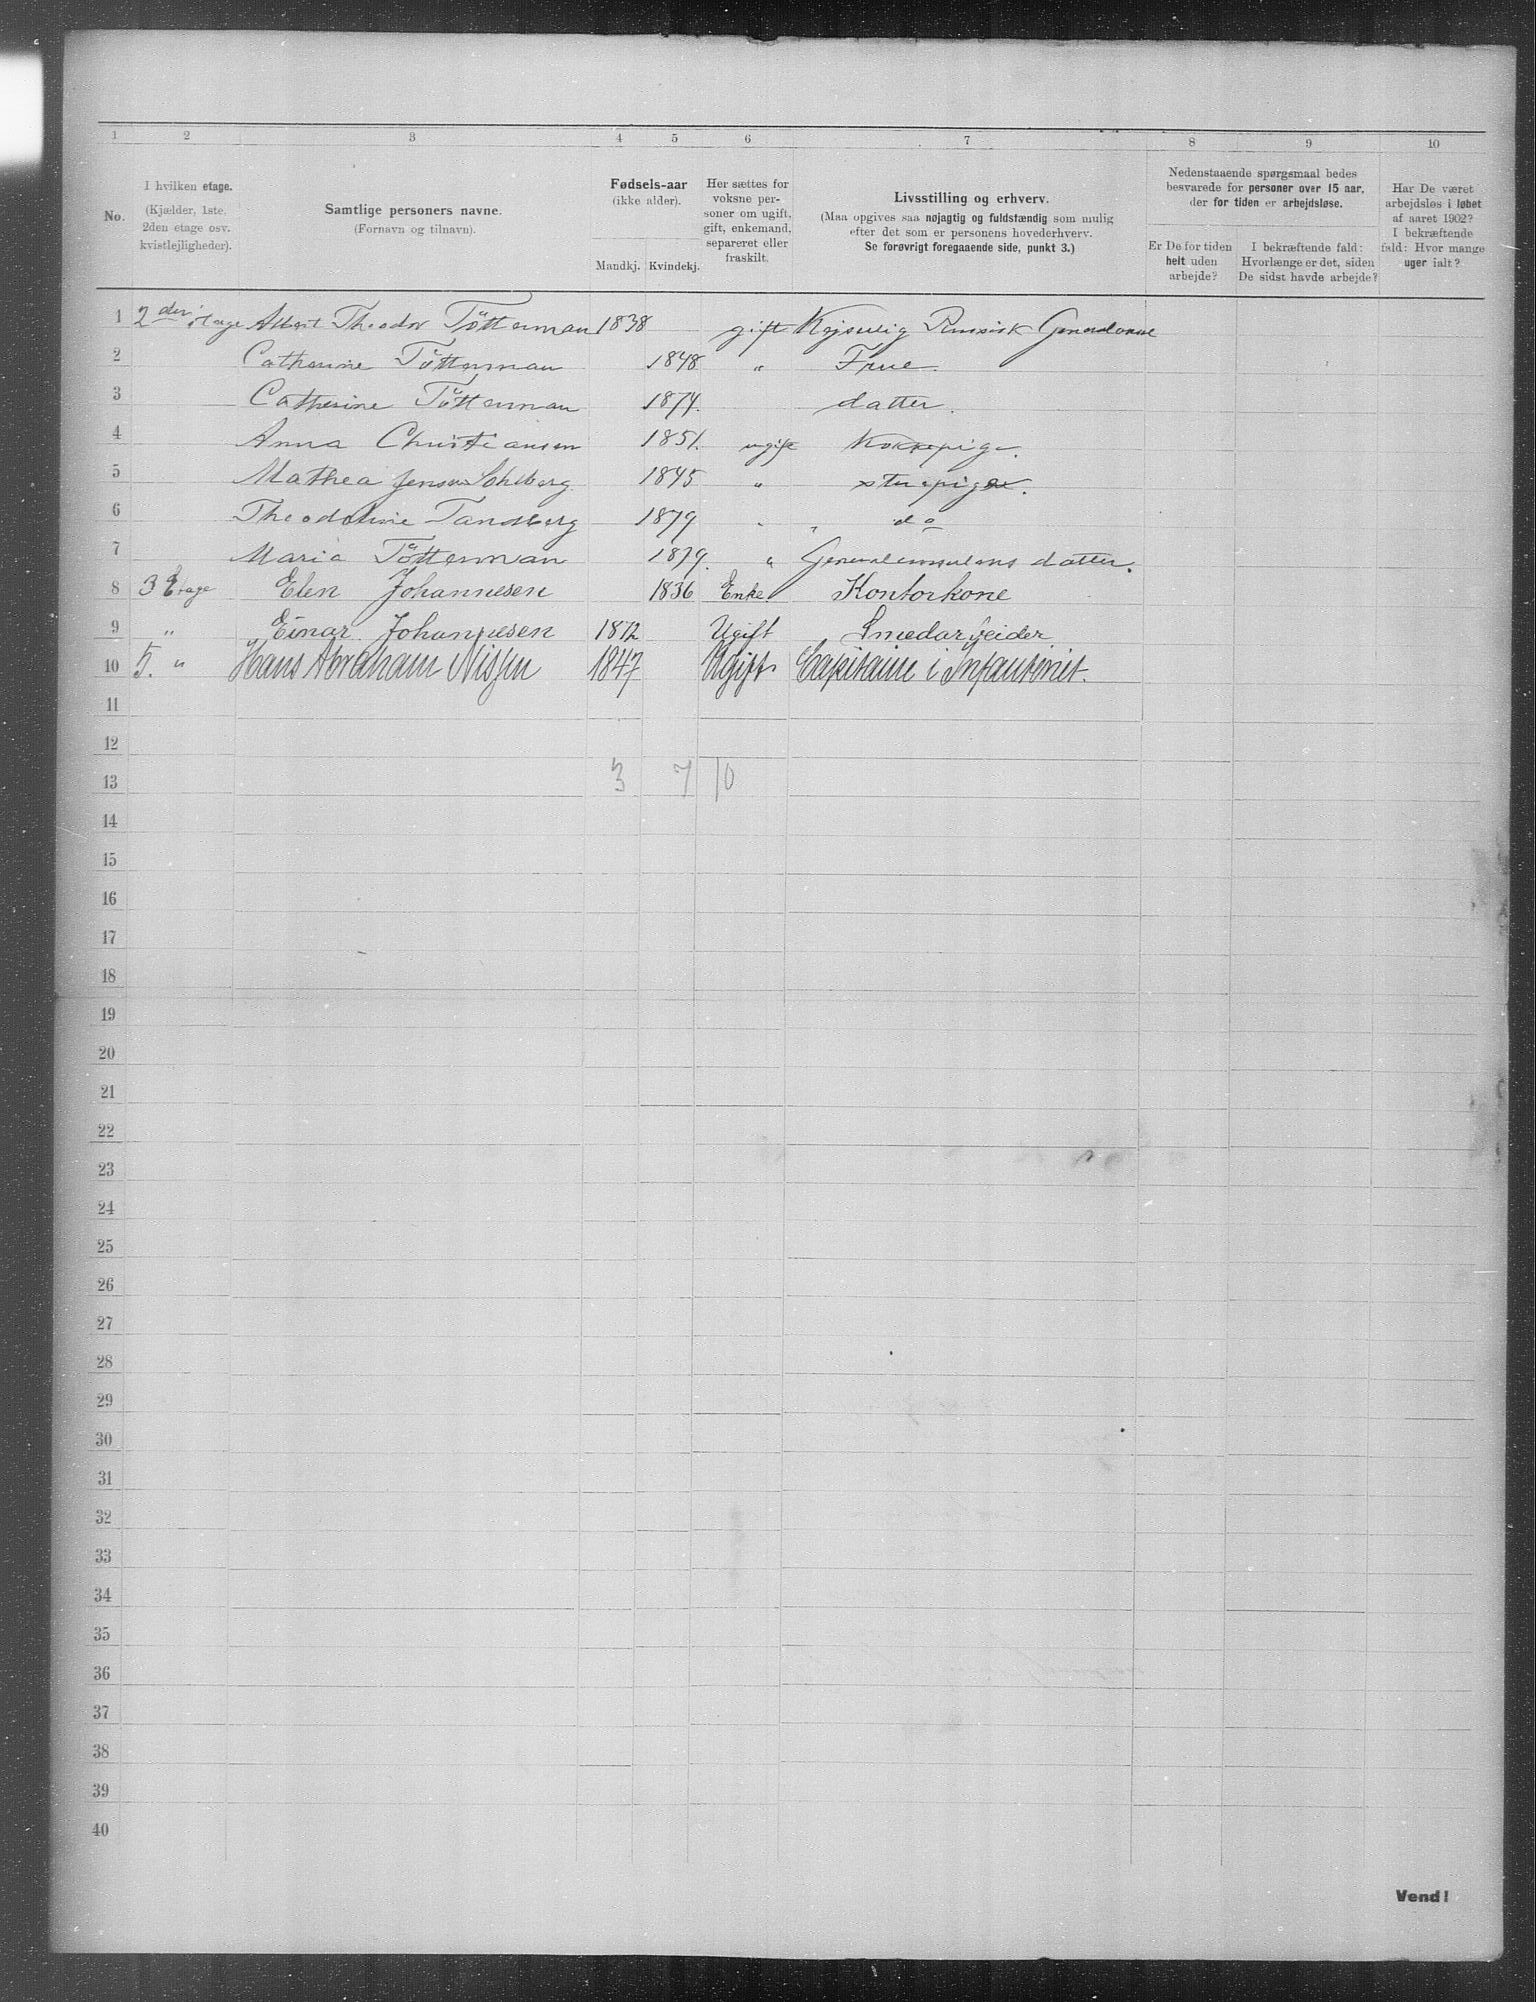 1 2 3 4 5 6 7 8 9 10
No.
I hvilken etage.
(Kjælder, 1ste, 2den etage osv. kvistlejligheder).
Samtlige personers navne.
(Fornavn og tilnavn).
Fødsels-aar
(ikke alder).
Mandkj. Kvindekj.
Her sættes for voksne personer om ugift, gift, enkemand, separeret eller fraskilt.
Livsstilling og erhverv.
(Maa opgives saa nøjagtig og fuldstændig som mulig
efter det som er personens hovederhverv.
Se forøvrigt foregaaende side, punkt 3.)
Nedenstaaende spørgsmaal bedes
besvarede for personer over 15 aar,
der for tiden er arbejdsløse.
Er De for tiden helt uden arbejde?
I bekræftende fald: Hvorlænge er det, siden De sidst havde arbejde?
Har De været arbejdsløs i løbet af aaret 1902? I bekræftende fald: Hvor mange uger ialt?
1 2den etage Albert Theodor Tötterman 1838 gift Kejserlig Russisk
2 Catherine Tötterman 1848 " Frue.
3 Catherine Tötterman 1874. datter.
4 Anna Christiansen 1851. ugift Kokkepige.
5 Mathea Jensen Sohlberg 1845 " stuepige.
6 Theodoline Tandberg 1879 " " do
7 Maria Tötterman 1879. " Generalconsulens datter.
8 3 Etage Elen Johannesen 1836 Enke Kontorkone
9 " Einar Johannesen 1872 Ugift Smedarbeider
10 5. " Hans Abraham Nissen 1847 Ugift Capitaine i Infanteriet.
11
12
13 3 7 10
14
15
16
17
18
19
20
21
22
23
24
25
26
27
28
29
30
31
32
33
34
35
36
37
38
39
40
Vend!